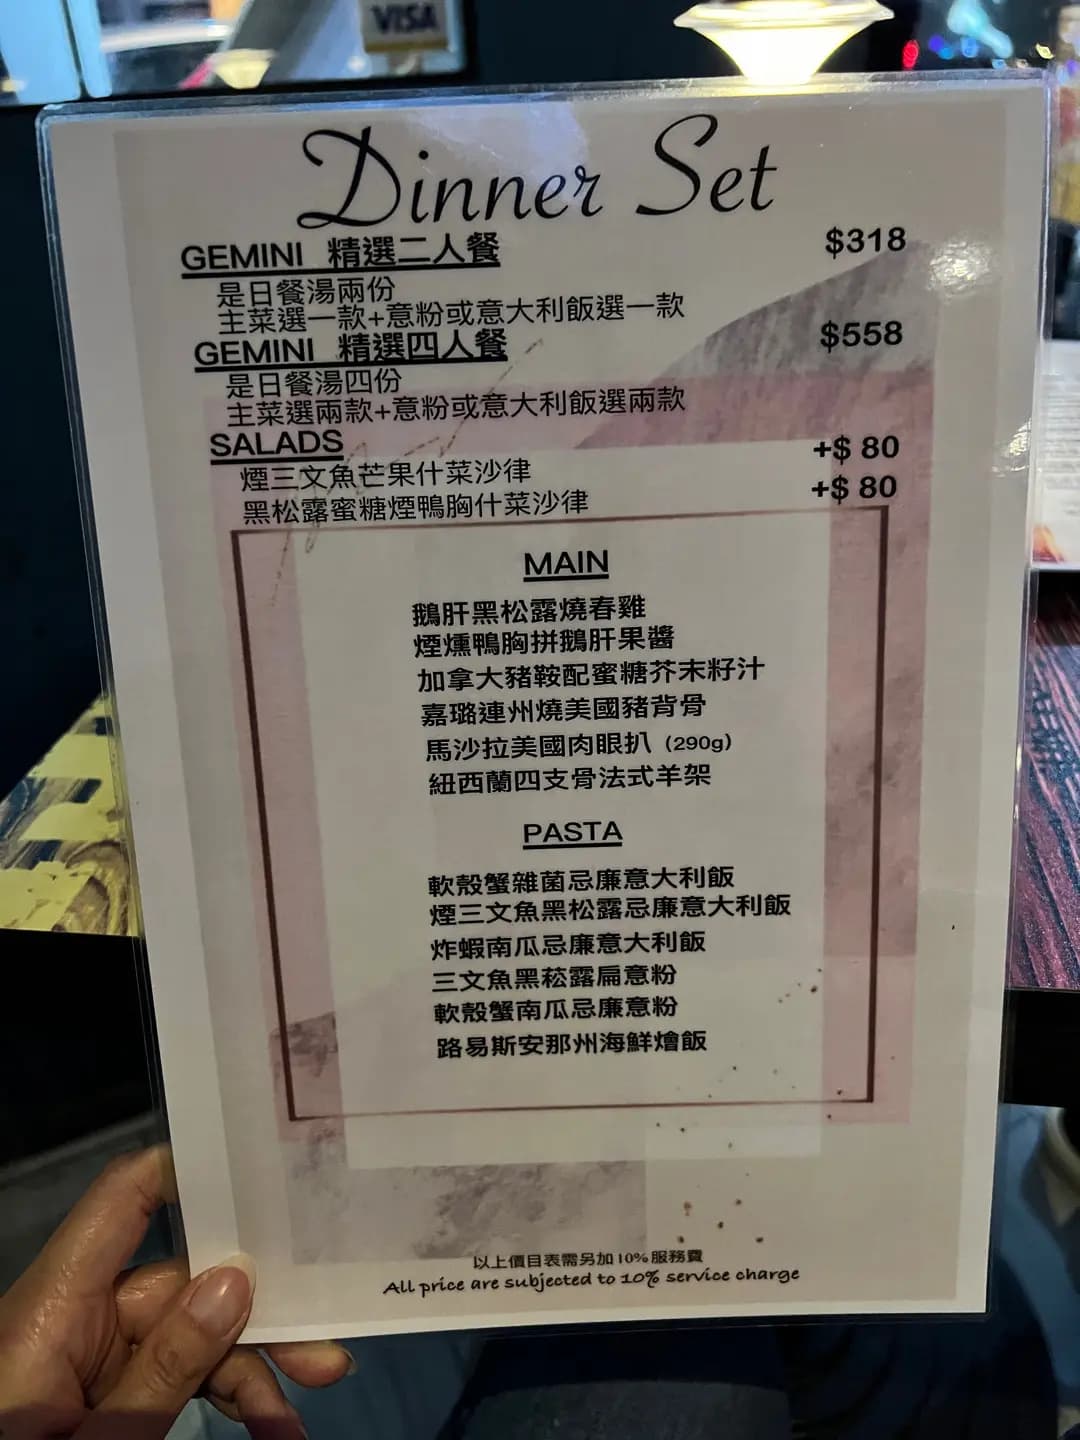 VISA
Dinner Set
GEMINI 精選二人餐 $318
是日餐湯兩份
主菜選一款+意粉或意大利飯選一款
GEMINI 精選四人餐 $558
是日餐湯四份
主菜選兩款+意粉或意大利飯選兩款
SALADS
煙三文魚芒果什菜沙律 +$ 80
黑松露蜜糖煙鴨胸什菜沙律 +$ 80
MAIN
鵝肝黑松露燒春雞
煙燻鴨胸拼鵝肝果醬
加拿大豬鞍配蜜糖芥末籽汁
嘉璐連州燒美國豬背骨
馬沙拉美國肉眼扒 (290g)
紐西蘭四支骨法式羊架
PASTA
軟殼蟹雜菌忌廉意大利飯
煙三文魚黑松露忌廉意大利飯
炸蝦南瓜忌廉意大利飯
三文魚黑菘露扁意粉
軟殼蟹南瓜忌廉意粉
路易斯安那州海鮮燴飯
以上價目表需另加10%服務費
All price are subjected to 10% service charge